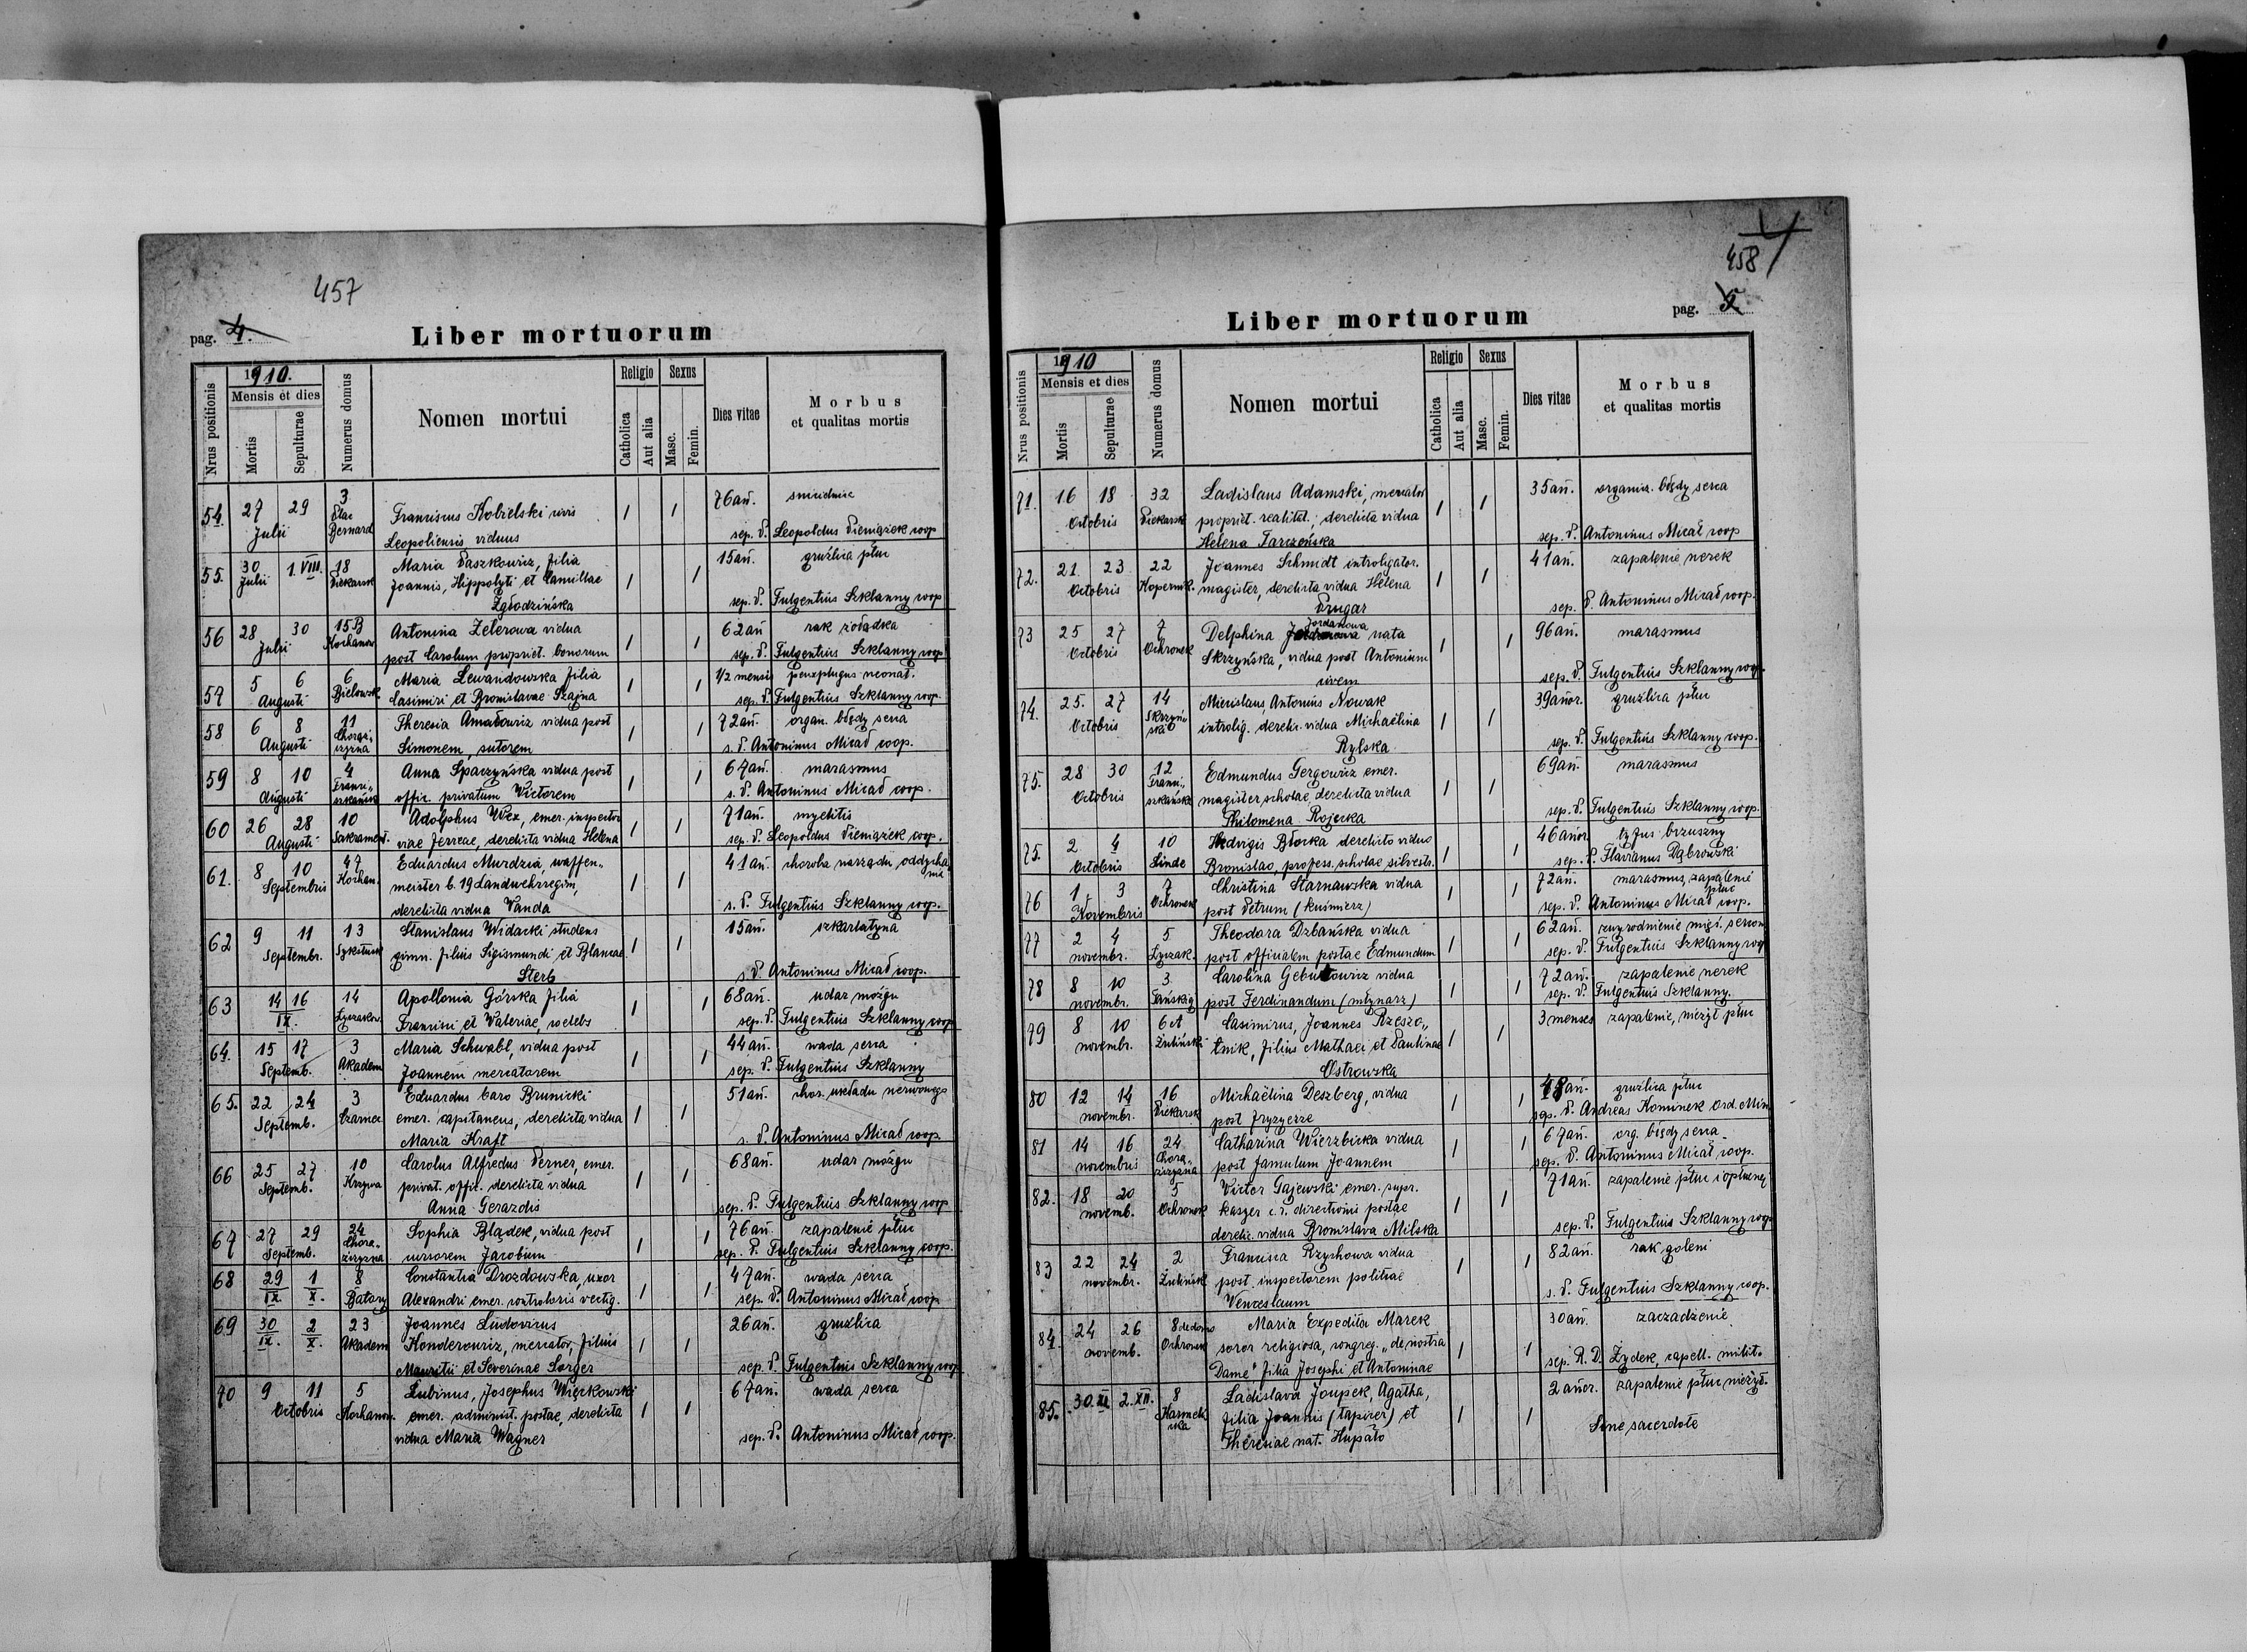 457
pag. 4.
Liber mortuorum
Nrus positionis
1910.
Mensis et dies
Mortis
Sepulturae
Numerus domus
Nomen mortui
Religio
Catholica
Aut alia
Sexus
Masc.
Femin.
Dies vitae
Morbus
et qualitas mortis
54. 27 29 Julii 3 Plac Bernard
Franciscus Kobielski civis
Leopoliensis viduus
1 1 76 añ.
sep. P. Leopoldus Pieniążek coop
55. 30 Julii 1. VIII. 18 Piekarsk
Maria Paszkowicz, filia
Joannis, Hippolyti et Camillae
Zgłodzińska
1 1 15 añ. gruźlica płuc
sep. P. Fulgentius Szklanny coop
56 28 30 Julii 15 B Kochanow
Antonina Zelerowa vidua
post Carolum propriet. bonorum
1 1 62 añ rak żołądka
sep. P. Fulgentius Szklanny coop
57 5 6 Augusti 6 Bielowsk
Maria Lewandowska filia
Casimiri et Bronislavae Szajna
1 1 1/2 mensis neonat.
sep. P. Fulgentius Szklanny coop.
58 6 8 Augusti 11 Chorążczyzna
Theresia vidua post
Simonem, sutorem
1 1 72 añ. organ. błędy serca
s. P. Antoninus Micał coop.
59 8 10 Augusti 4 Franci„szkańsk
Anna Spaczyńska vidua post
offic. privatum Victorem
1 1 67 añ. marasmus
s. P. Antoninus Micał coop.
60 26 28 Augusti 10 Sakrament.
Adolphus Wex, emer. inspector
viae ferreae, derelicta vidua Helena
1 1 71 añ. myelitis
sep. P. Leopoldus Pieniążek coop.
61. 8 10 Septembris 47 Kochan.
Eduardus Murdzia, waffen„
meister b. 19 Landwehrregim,
derelicta vidua Vanda
1 1 41 añ. choroba narządu oddychania
s. P. Fulgentius Szklanny coop.
62 9 11 Septembr. 13 Sykstusk
Stanislaus Widacki studens
gimn. filius Sigismundi et Blancae
Sterb
1 1 15 añ. szkarlatyna
s. P. Antoninus Micał coop.
63 14 16 IX. 14 Łyczakow.
Apollonia Górska filia
Francisci et Valeriae, coelebs
1 1 68 añ. udar mózgu
sep. P. Fulgentius Szklanny coop
64. 15 17 Septemb. 3 Akadem
Maria Schwabl, vidua post
Joannem mercatorem
1 1 44 añ. wada serca
sep. P. Fulgentius Szklanny
65. 22 24 Septemb. 3 Czarnec
Eduardus baro Brunicki
emer. capitaneus, derelicta vidua
Maria Kraft
1 1 51 añ. chor. układu nerwowego
s. P. Antoninus Micał coop
66 25 27 Septemb. 10 Krzywa
Carolus Alfredus Perner, emer.
privat. offic. derelicta vidua
Anna Gerazdis
1 1 68 añ. udar mózgu
sep. P. Fulgentius Szklanny coop
67 27 29 Septemb. 24 Chora„żczyzna
Sophia Blądek, vidua post
cursorem Jacobum
1 1 76 añ. zapalenie płuc
sep. P. Fulgentius Szklanny coop.
68 29 IX. 1 X. 8 Batory
Constantia Drozdowska, uxor
Alexandri emer. controloris vectig.
1 1 47 añ. wada serca
sep. P. Antoninus Micał coop
69 30 IX. 2 X. 23 Akadem
Joannes Ludovicus
Konderowicz, mercator, filius
Mauritii et Severinae Sorger
1 1 26 añ. gruźlica
sep. P. Fulgentius Szklanny coop
70 9 11 Octobris 5 Kochanow.
Lubinus, Josephus Więckowski
emer. administ. postae, derelicta
vidua Maria Wagner
1 1 67 añ. wada serca
sep. P. Antoninus Micał coop.
458
pag. 5
Liber mortuorum
Nrus positionis
1910
Mensis et dies
Mortis
Sepulturae
Numerus domus
Nomen mortui
Religio
Catholica
Aut alia
Sexus
Masc.
Femin.
Dies vitae
Morbus
et qualitas mortis
71. 16 18 Octobris 32 Piekarsk
Ladislaus Adamski, mercator
propriet. realitat.; derelicta vidua
Helena Tarczeńska
1 1 35 añ. organicz. błędy serca
sep. P. Antoninus Micał coop
72. 21. 23 Octobris 22 Kopernik.
Joannes Schmidt introligator.
magister, derelicta vidua Helena
Prugar
1 1 41 añ. zapalenie nerek
sep. P. Antoninus Micał coop.
73 25 27 Octobris 7 Ochronek
Delphina Jordanowa nata
Skrzyńska, vidua post Antonium
civem
1 1 96 añ. marasmus
sep. P. Fulgentius Szklanny coop.
74. 25. 27 Octobris 14 Skrzyńska
Miecislaus, Antonius Nowak
introlig. derelic. vidua Michaëlina
Rylska
1 1 39 añor. gruźlica płuc
sep. P. Fulgentius Szklanny coop.
75. 28 30 Octobris 12 Franci„szkańska
Edmundus Gergowicz emer.
magister scholae, derelicta vidua
Philomena Rojecka
1 1 69 añ. marasmus
sep. P. Fulgentius Szklanny coop.
75. 2 4 Octobris 10 Linde
Hedvigis Błocka derelicto viduo
Bronislao, profess. scholae silvestr.
1 1 46 añor. tyfus brzuszny
sep. P. Flavianus Dąbrowski
76 1 3 Novembris 7 Ochronek
Christina Starnawska vidua
post Petrum (kuśnierz)
1 1 72 añ. marasmus, zapalenie płuc
sep. P. Antoninus Micał coop.
77 2 4 novembr. 5 Łyczak.
Theodora Dzbańska vidua
post officialem postae Edmundum
1 1 62 añ. zwyrodnienie mięś. sercow
sep. P. Fulgentius Szklanny coop
78 8 10 novembr. 3
Carolina Gebultowicz vidua
post Ferdinandum (młynarz)
1 1 72 añ. zapalenie nerek
sep. P. Fulgentius Szklanny.
79 8 10 novembr. 6 A Zuliński
Casimirus, Joannes Rzeszo„
tnik, filius Mathaei et Paulinae
Ostrowska
1 1 3 menses zapalenie, nieżyt płuc
80 12 14 novembr. 16 Piekarsk
Michaëlina Deszberg, vidua
post fryzyerze
1 1 48 añ. gruźlica płuc
sep. P. Andreas Kominek Ord. Min
81 14 16 novembris 24 Chorą„żczyzna
Catharina Wierzbicka vidua
post famulum Joannem
1 1 67 añ. org. błędy serca
sep. P. Antoninus Micał coop.
82. 18 20 novemb. 5 Ochronek
Victor Gajewski emer. supr.
kasyer c. r. directionis postae
derelic. vidua Bronislava Milska
1 1 71 añ. zapalenie płuc i opłucnej
sep. P. Fulgentius Szklanny coop
83 22 24 novembr. 2 Zulińsk
Francisca Rzychowa vidua
post inspectorem politiae
Venceslaum
1 1 82 añ. rak goleni
s. P. Fulgentius Szklanny coop.
84. 24 26 novemb. 8 de domo Ochronek
Maria Expedita Marek
soror religiosa, congreg. „de nostra
Dame" filia Josephi et Antoninae
1 1 30 añ. zaczadzenie
sep. R. D. Żydek, capell. milit.
85. 30. XI 2. XII. 8 Karmelicka
Ladislava Joupek, Agatha,
filia Joannis (tapicer) et
Theresiae nat. Hupało
1 1 2 añor. zapalenie płuc nieżyt.
Sine sacerdote